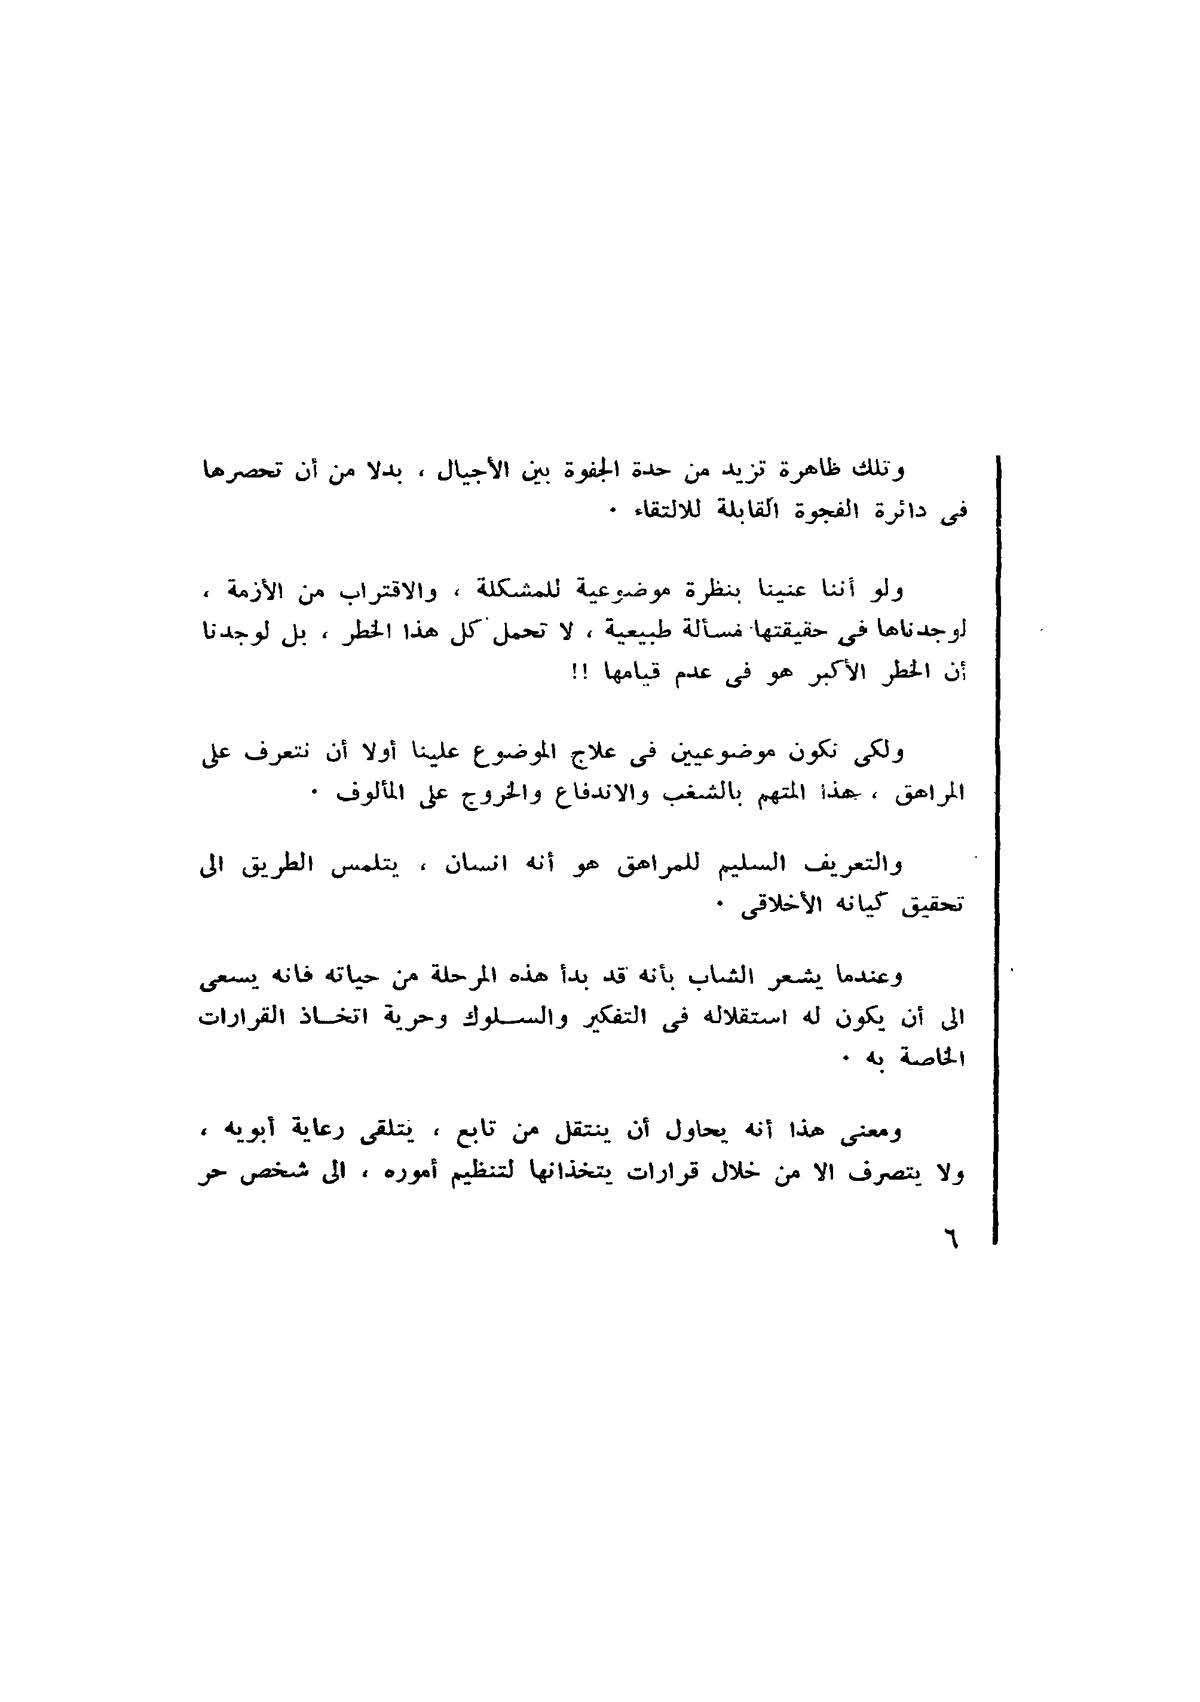 وتلك ظاهرة تزيد من حدة الجفوة بين الأجيال ، بدلا من أن تحصرها
فى دائرة الفجوة القابلة للالتقاء ٠
ولو أننا عنينا بنظرة موضوعية للمشكلة ، والاقتراب من الأزمة ،
لوجدناها فى حقيقتها مسألة طبيعية ، لا تحمل كل هذا الخطر ، بل لوجدنا
أن الخطر الأكبر هو فى عدم قيامها !!
ولكى نكون موضوعيين فى علاج الموضوع علينا أولا أن نتعرف على
المراهق ، هذا المتهم بالشغب والاندفاع والخروج على المألوف ٠
والتعريف السليم للمراهق هو أنه انسان ، يتلمس الطريق الى
تحقيق كيانه الأخلاقى ٠
وعندما يشعر الشاب بأنه قد بدأ هذه المرحلة من حياته فانه يسعى
الى أن يكون له استقلاله فى التفكير والسلوك وحرية اتخاذ القرارات
الخاصة به ٠
ومعنى هذا أنه يحاول أن ينتقل من تابع ، يتلقى رعاية أبويه ،
ولا يتصرف الا من خلال قرارات يتخذانها لتنظيم أموره ، الى شخص حر
٦